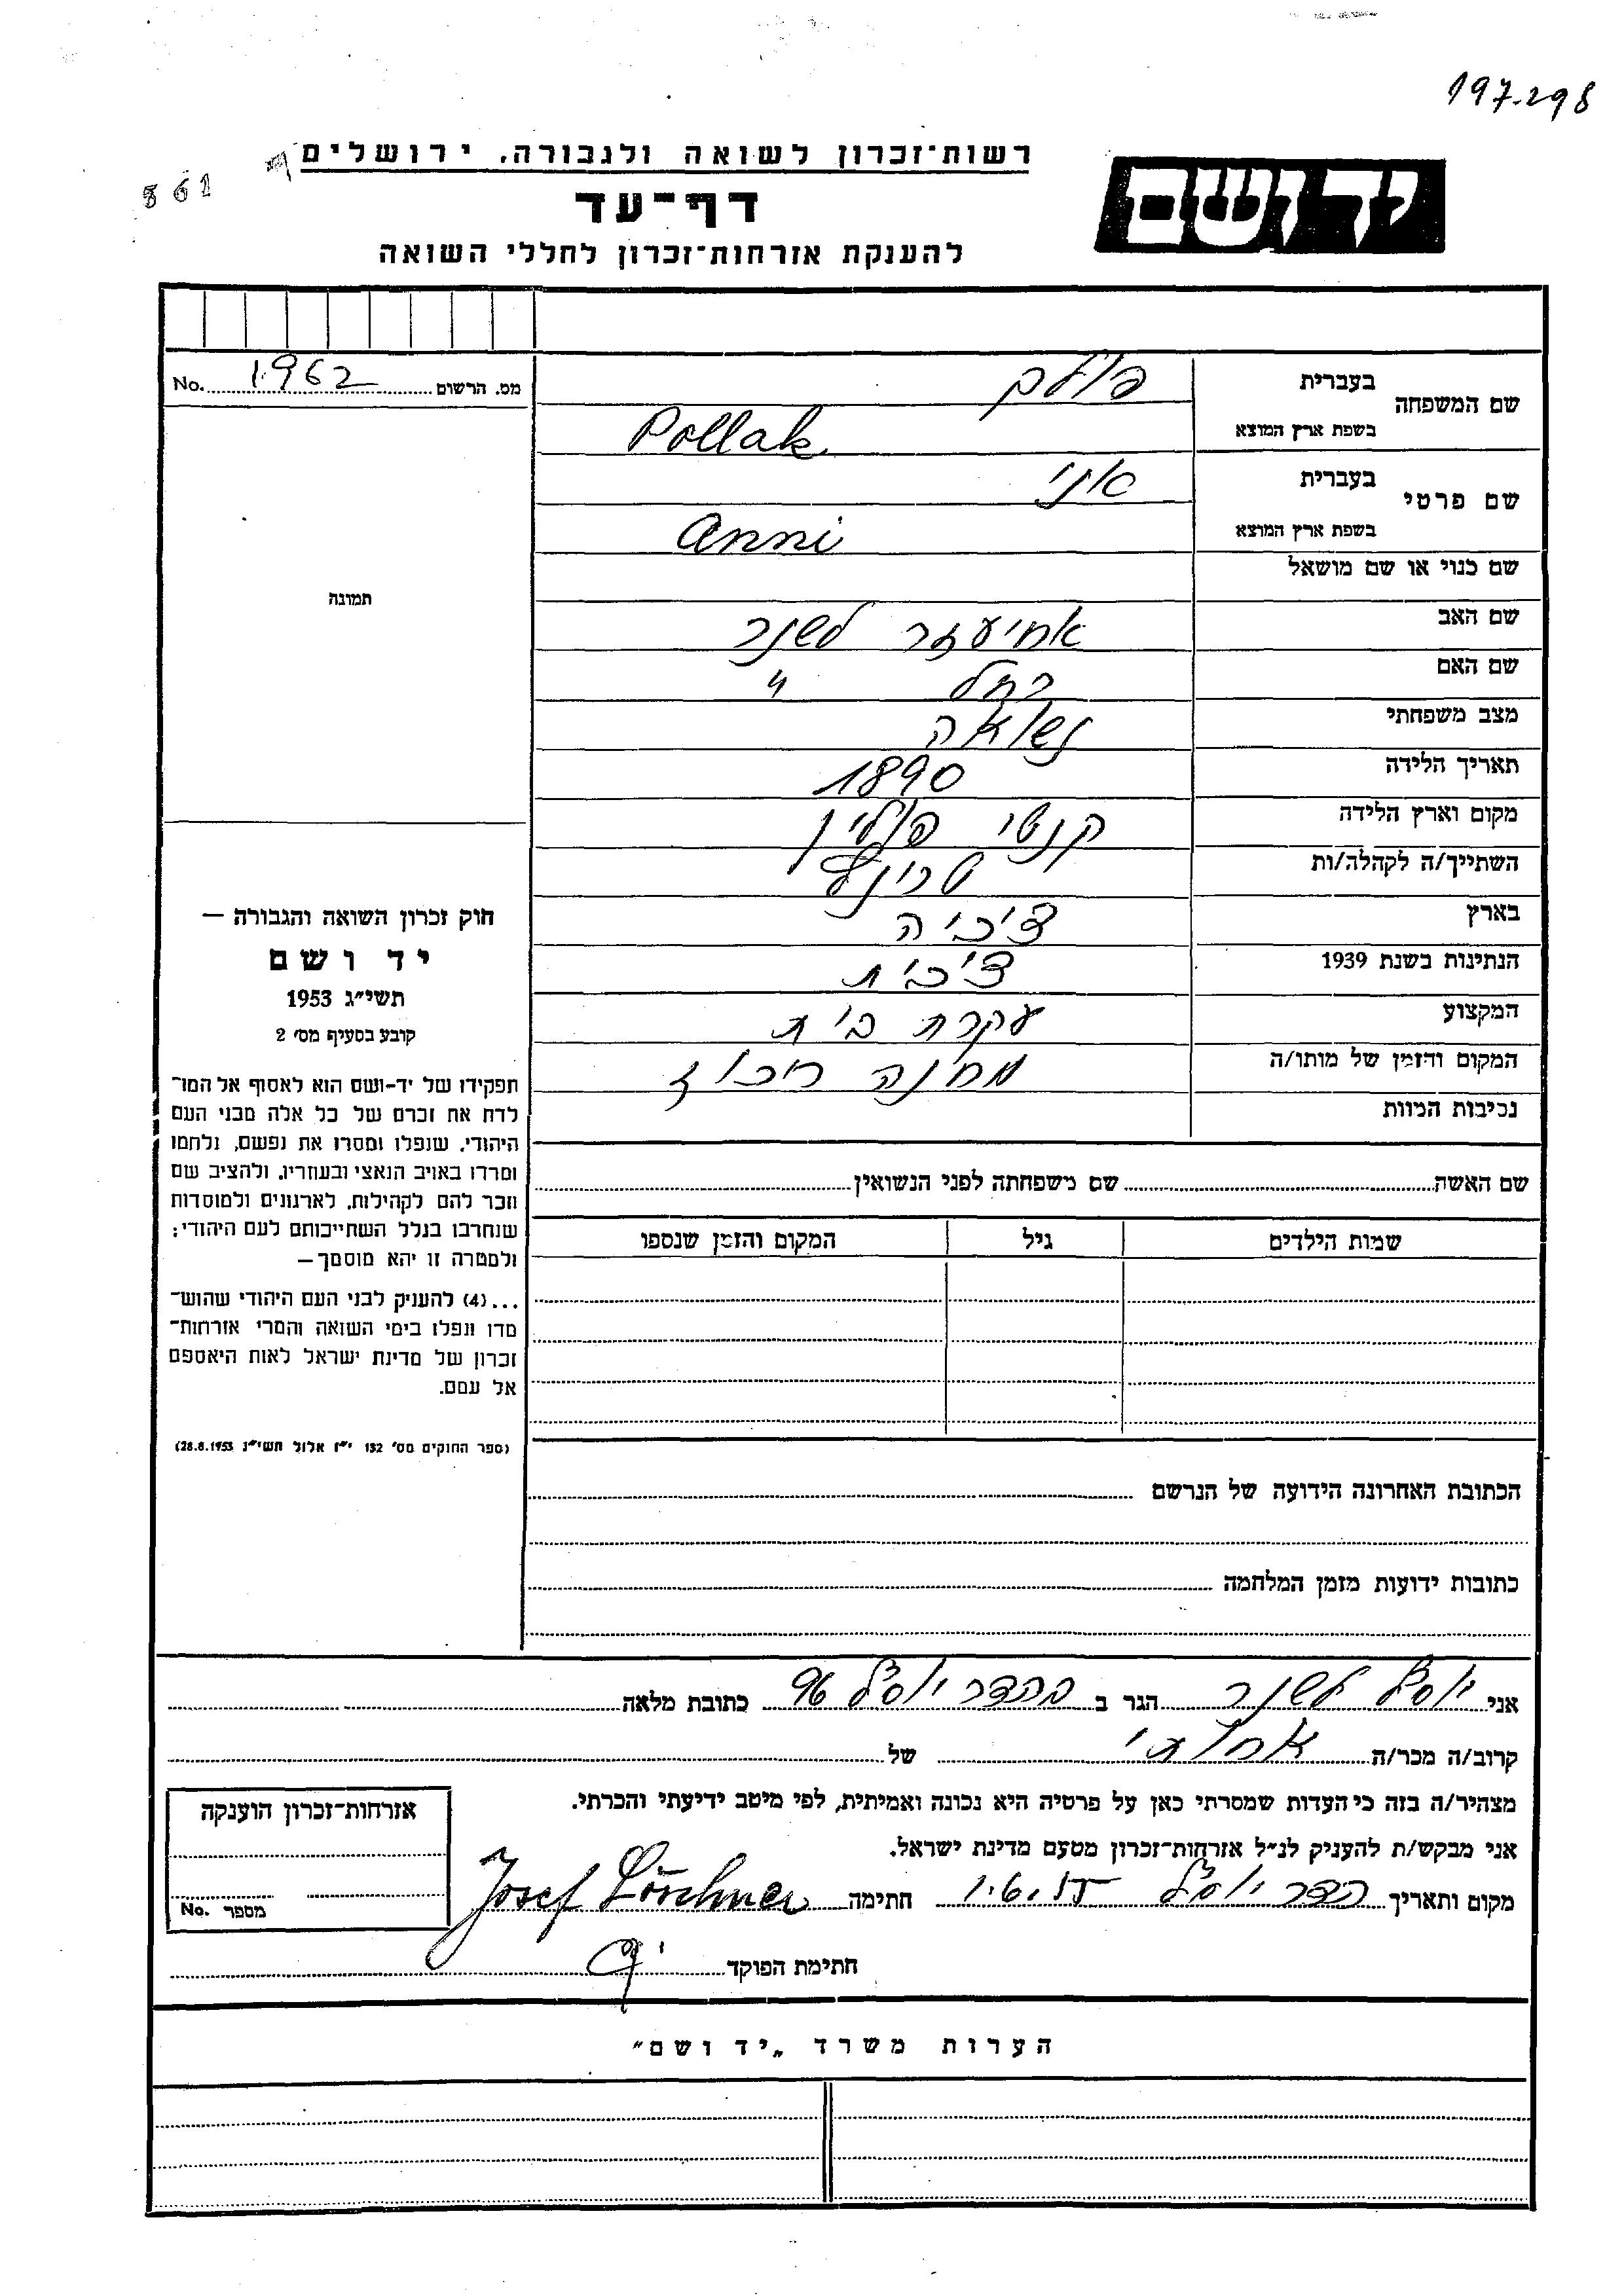 197.298
861
רשות־זכרון לשואה ולגבורה, ירושלים
יד ושם
דף־עד
להענקת אזרחות־זכרון לחללי השואה
מס. הרשום 1962 No.
שם המשפחה בעברית פולק
בשפת ארץ המוצא Pollak
שם פרטי בעברית אני
בשפת ארץ המוצא Anni
שם כנוי או שם מושאל
שם האב אחיעזר לשנר
שם האם רחל "
מצב משפחתי נשואה
תאריך הלידה 1890
מקום וארץ הלידה קנטי פולין
השתייך/ה לקהלה/ות
בארץ צ'כיה
הנתינות בשנת 1939 צ'כית
המקצוע עקרת בית
המקום והזמן של מותו/ה מחנה ריכוז
נסיבות המוות
תמונה
חוק זכרון השואה והגבורה —
יד ושם
תשי"ג 1953
קובע בסעיף מס' 2
תפקידו של יד-ושם הוא לאסוף אל המו־
לדת את זכרם של כל אלה מבני העם
היהודי, שנפלו ומסרו את נפשם, נלחמו
ומרדו באויב הנאצי ובעוזריו, ולהציב שם
וזכר להם לקהילות, לארגונים ולמוסדות
שנחרבו בגלל השתייכותם לעם היהודי;
ולמטרה זו יהא מוסמך—
...(4) להעניק לבני העם היהודי שהוש־
מדו ונפלו בימי השואה והמרי אזרחות־
זכרון של מדינת ישראל לאות היאספם
אל עמם.
(ספר החוקים מס' 132 י"ז אלול תשי"ג 28.8.1953)
שם האשה שם משפחתה לפני הנשואין
שמות הילדים גיל המקום והזמן שנספו
הכתובת האחרונה הידועה של הנרשם
כתובות ידועות מזמן המלחמה
אני יוסף לשנר הגר ב כתובת מלאה
קרוב/ה מכר/ה אחותי של
מצהיר/ה בזה כי העדות שמסרתי כאן על פרטיה היא נכונה ואמיתית, לפי מיטב ידיעתי והכרתי.
אני מבקש/ת להעניק לנ"ל אזרחות־זכרון מטעם מדינת ישראל.
מקום ותאריך 1.6.55 חתימה Josef Löschner
חתימת הפוקד
אזרחות־זכרון הוענקה
מספר No.
הערות משרד „יד ושם"